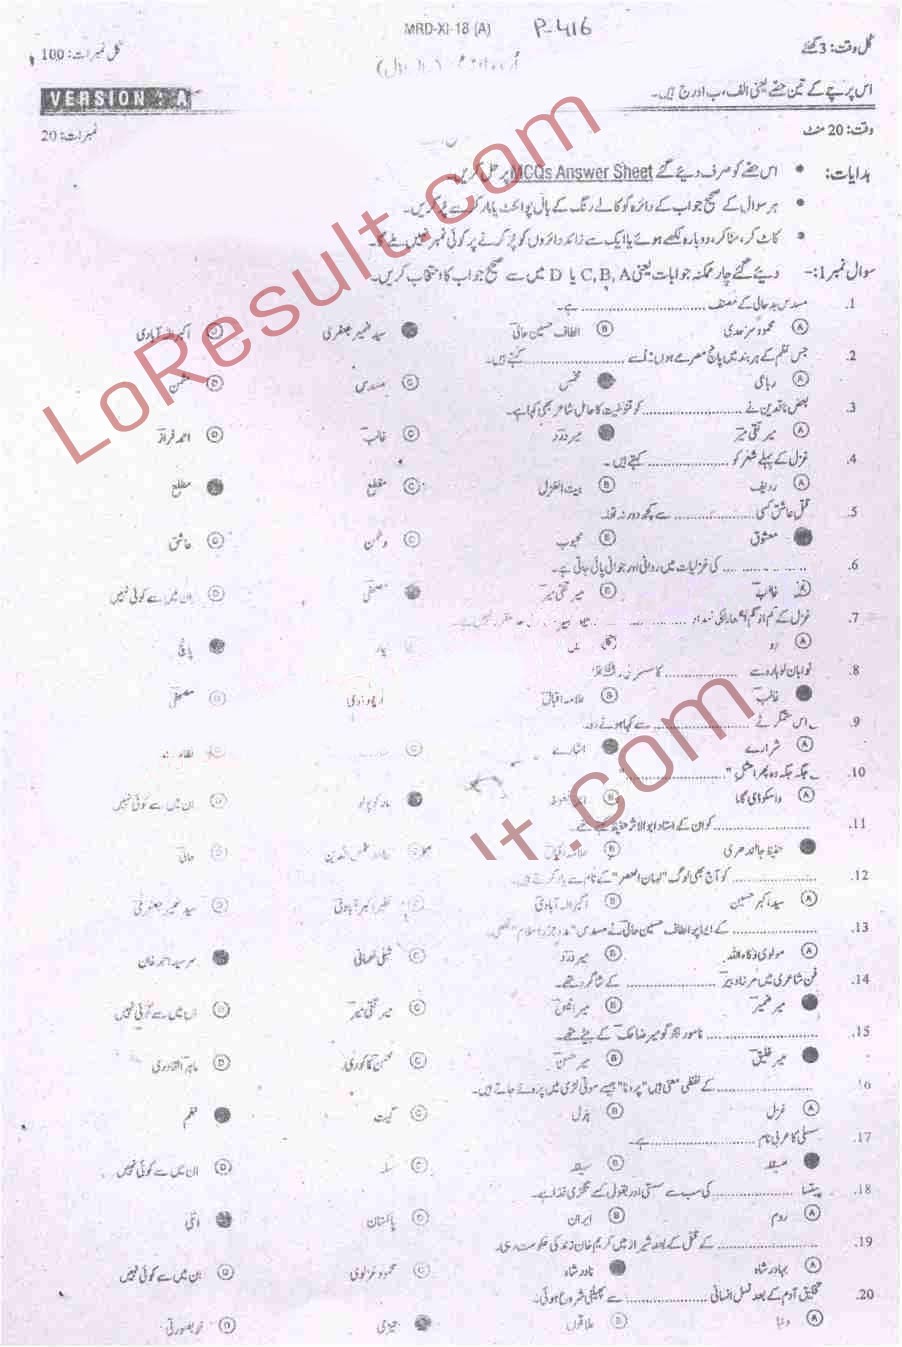 MRD-XI-18 (A) P-416
کل وقت: 3 گھنٹے
کل نمبرات: 100
اس پرچے کے تین حصے یعنی الف، ب اور ج ہیں۔
VERSION : A
وقت: 20 منٹ
نمبرات: 20
ہدایات: • اس حصے کو صرف دیئے گئے MCQs Answer Sheet پر حل کریں۔
• ہر سوال کے صحیح جواب کے دائرہ کو کالے رنگ کے بال پوائنٹ یا مارکر سے پُر کریں۔
• کاٹ کر، مٹا کر، دوبارہ لکھے ہوئے یا ایک سے زائد دائروں کو پُر کرنے پر کوئی نمبر نہیں ملے گا۔
سوال نمبر 1:- دیئے گئے چار ممکنہ جوابات یعنی A, B, C یا D میں سے صحیح جواب کا انتخاب کریں۔
1. مسدس بدحالی کے مصنف ........................ ہے۔
A محمود سرحدی B الطاف حسین حالی سید ضمیر جعفری D اکبر الہ آبادی
2. جس نظم کے ہر بند میں پانچ مصرعے ہوں؛ اُسے .................. کہتے ہیں۔
A رباعی مخمس C مسدس D مثمن
3. بعض ناقدین نے ........................ کو قنوطیت کا حامل شاعر بھی کہا ہے۔
A میر تقی میر میر درد C غالب D احمد فراز
4. غزل کے پہلے شعر کو .................... کہتے ہیں۔
A ردیف B بیت الغزل C مقطع مطلع
5. قتل عاشق کسی .................... سے کچھ دور نہ تھا۔
معشوق B محبوب C دشمن D عاشق
6. .................... کی غزلیات میں روانی اور جوانی پائی جاتی ہے۔
A غالب B میر تقی میر مصحفی D ان میں سے کوئی نہیں
7. غزل کے کم از کم اشعار کی تعداد
A دو پانچ
8. نوابان لوہارو سے ..................
غالب B علامہ اقبال D مصحفی
9. ۔ اس ستمگر نے ........................ سے کہا ہونے دو۔
A شرارے اشارے C
10. ۔ جگہ جگہ وہ پھرا مثلِ ........................"
A واسکوڈی گاما B مارکوپولو D ان میں سے کوئی نہیں
11. ........................ کو ان کے استاد ابوالاثر حفیظ کہتے تھے۔
حفیظ جالندھری B D حالی
12. .................... کو آج بھی لوگ "لسان العصر" کے نام سے یاد کرتے ہیں۔
A سید اکبر حسین B اکبر الہ آبادی C نظیر اکبر آبادی D سید ضمیر جعفری
13. .................... کے ایما پر الطاف حسین حالی نے مسدس "مدوجزر اسلام" لکھی۔
A مولوی ذکاء اللہ B میر درد C شبلی نعمانی سر سید احمد خان
14. فنِ شاعری میں مرزا دبیر .................... کے شاگرد تھے۔
میر ضمیر B میر انیس C میر تقی میر D ان میں سے کوئی نہیں
15. ........................ نامور ہجو گو میر ضاحک کے بیٹے تھے۔
میر خلیق B میر حسن C محسن کاکوروی D ماہر القادری
16. ........................ کے لفظی معنی ہیں "پرونا" جیسے موتی لڑی میں پروئے جاتے ہیں۔
A غزل B ہزل C گیت نظم
17. سسلی کا عربی نام ........................ ہے۔
B C D ان میں سے کوئی نہیں
18. پیتسا .................... کی سب سے سستی اور بقولِ کسے تگڑی غذا ہے۔
A روم B ایران C پاکستان اٹلی
19. ........................ کے قتل کے بعد شیراز میں کریم خان زند کی حکومت رہی۔
A بہادر شاہ نادر شاہ C محمود غزنوی D ان میں سے کوئی نہیں
20. تخلیق آدم کے بعد نسل انسانی .................... سے پھیلنی شروع ہوئی۔
A دنیا B علاقوں تیزی D خوبصورتی
LoResult.com
lt.com